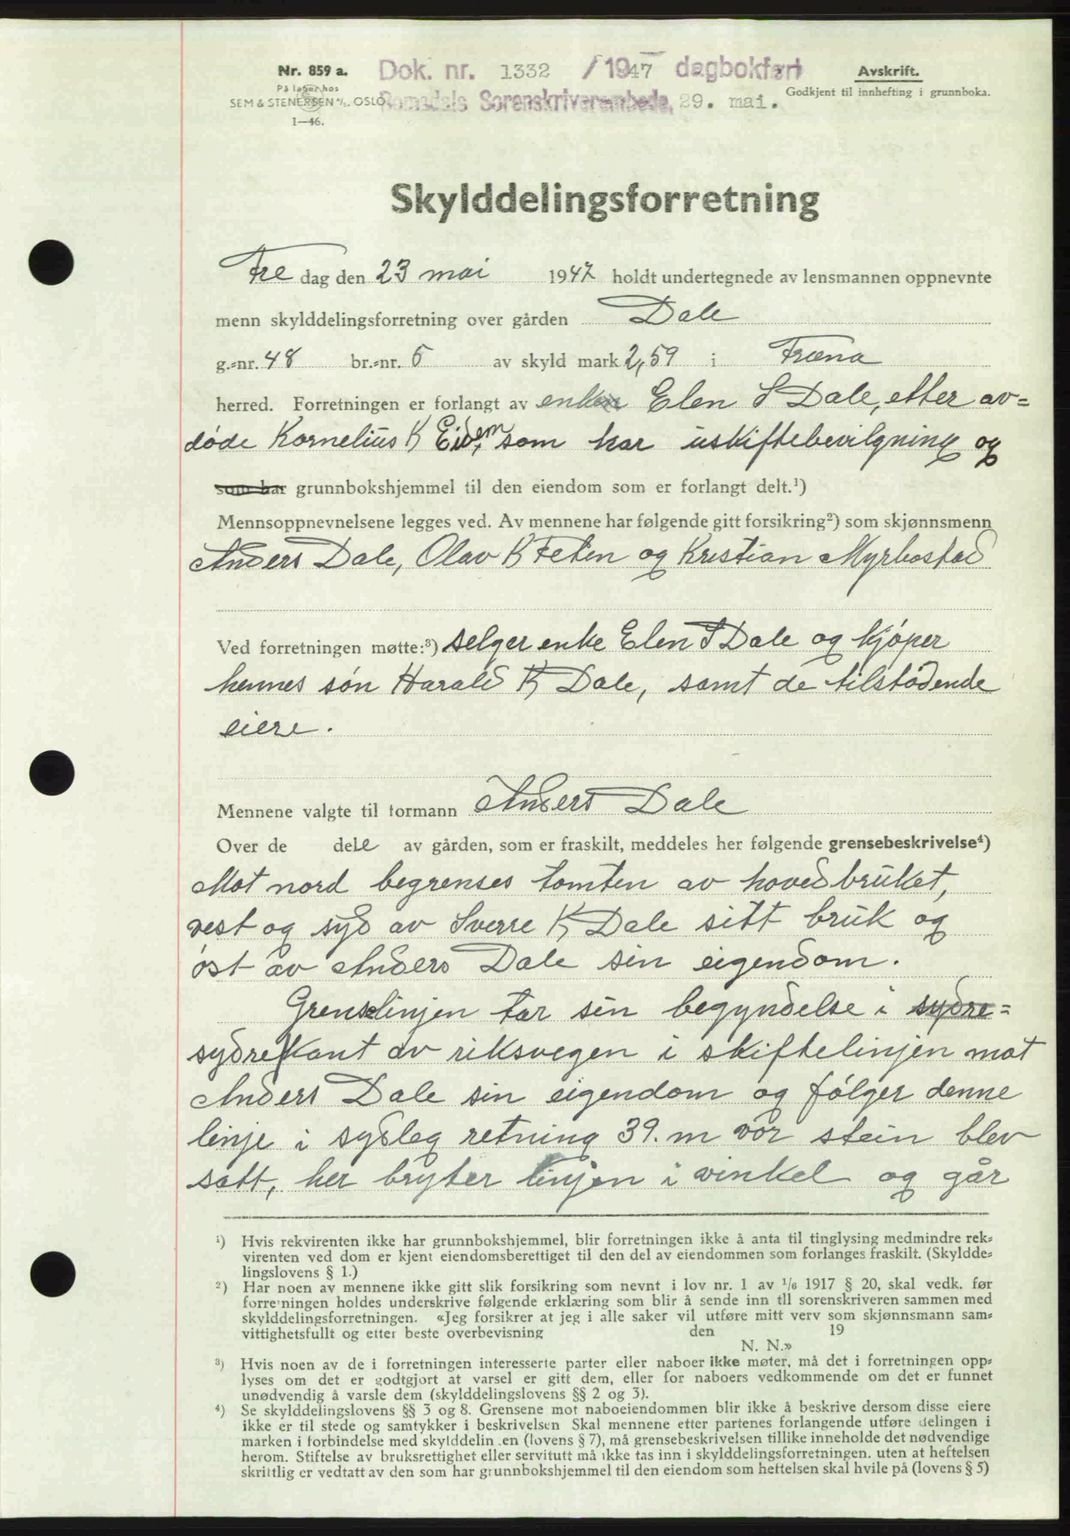 Nr. 859 a.
På lager hos
SEM & STENERSEN A/S. OSLO.
1—46.
Dok. nr. 1332 / 1947 dagbokført
Romsdals Sorenskriverembede, 29. mai.
Avskrift.
Godkjent til innhefting i grunnboka.
Skylddelingsforretning
Fre dag den 23 mai 1947 holdt undertegnede av lensmannen oppnevnte
menn skylddelingsforretning over gården Dale
g.-nr. 48 br.-nr. 5 av skyld mark 2,59 i Fræna
herred. Forretningen er forlangt av enken Elen S Dale, etter av=
døde Kornelius K Eidem, som har uskiftebevilgning og
som har grunnbokshjemmel til den eiendom som er forlangt delt.¹)
Mennsoppnevnelsene legges ved. Av mennene har følgende gitt forsikring²) som skjønnsmenn
Anders Dale, Olav K Feten og Kristian Myrbostad
Ved forretningen møtte:³) selger enke Elen S Dale og kjøper
hennes søn Harald K Dale, samt de tilstødende
eiere.
Mennene valgte til formann Anders Dale
Over de dele av gården, som er fraskilt, meddeles her følgende grensebeskrivelse⁴)
Mot nord begrenses tomten av hovedbruket,
vest og syd av Sverre K Dale sitt bruk og
øst av Anders Dale sin eigendom.
Grenselinjen tar sin begyndelse i sydre=
sydre kant av riksvegen i skiftelinjen mot
Anders Dale sin eigendom og følger denne
linje i sydleg retning 39. m vor stein blev
satt, her bryter linjen i vinkel og går
¹) Hvis rekvirenten ikke har grunnbokshjemmel, blir forretningen ikke å anta til tinglysing medmindre rek-
virenten ved dom er kjent eiendomsberettiget til den del av eiendommen som forlanges fraskilt. (Skyldde-
lingslovens § 1.)
²) Har noen av mennene ikke gitt slik forsikring som nevnt i lov nr. 1 av 1/6 1917 § 20, skal vedk. før
forretningen holdes underskrive følgende erklæring som blir å sende inn til sorenskriveren sammen med
skylddelingsforretningen. «Jeg forsikrer at jeg i alle saker vil utføre mitt verv som skjønnsmann sam-
vittighetsfullt og etter beste overbevisning den 19
N. N.»
³) Hvis noen av de i forretningen interesserte parter eller naboer ikke møter, må det i forretningen opp-
lyses om det er godtgjort at varsel er gitt dem, eller for naboers vedkommende om det er funnet
unødvendig å varsle dem (skylddelingslovens §§ 2 og 3).
⁴) Se skylddelingslovens §§ 3 og 8. Grensene mot naboeiendommen blir ikke å beskrive dersom disse eiere
ikke er til stede og samtykker i beskrivelsen Skal mennene etter partenes forlangende utføre delingen i
marken i forbindelse med skylddelingen (lovens § 7), må grensebeskrivelsen tillike inneholde det nødvendige
herom. Stiftelse av bruksrettighet eller servitutt må ikke tas inn i skylddelingsforretningen. uten at heftelsen
skriftlig er vedtatt av den som har grunnbokshjemmel til den eiendom som heftelsen skal hvile på (lovens § 5)